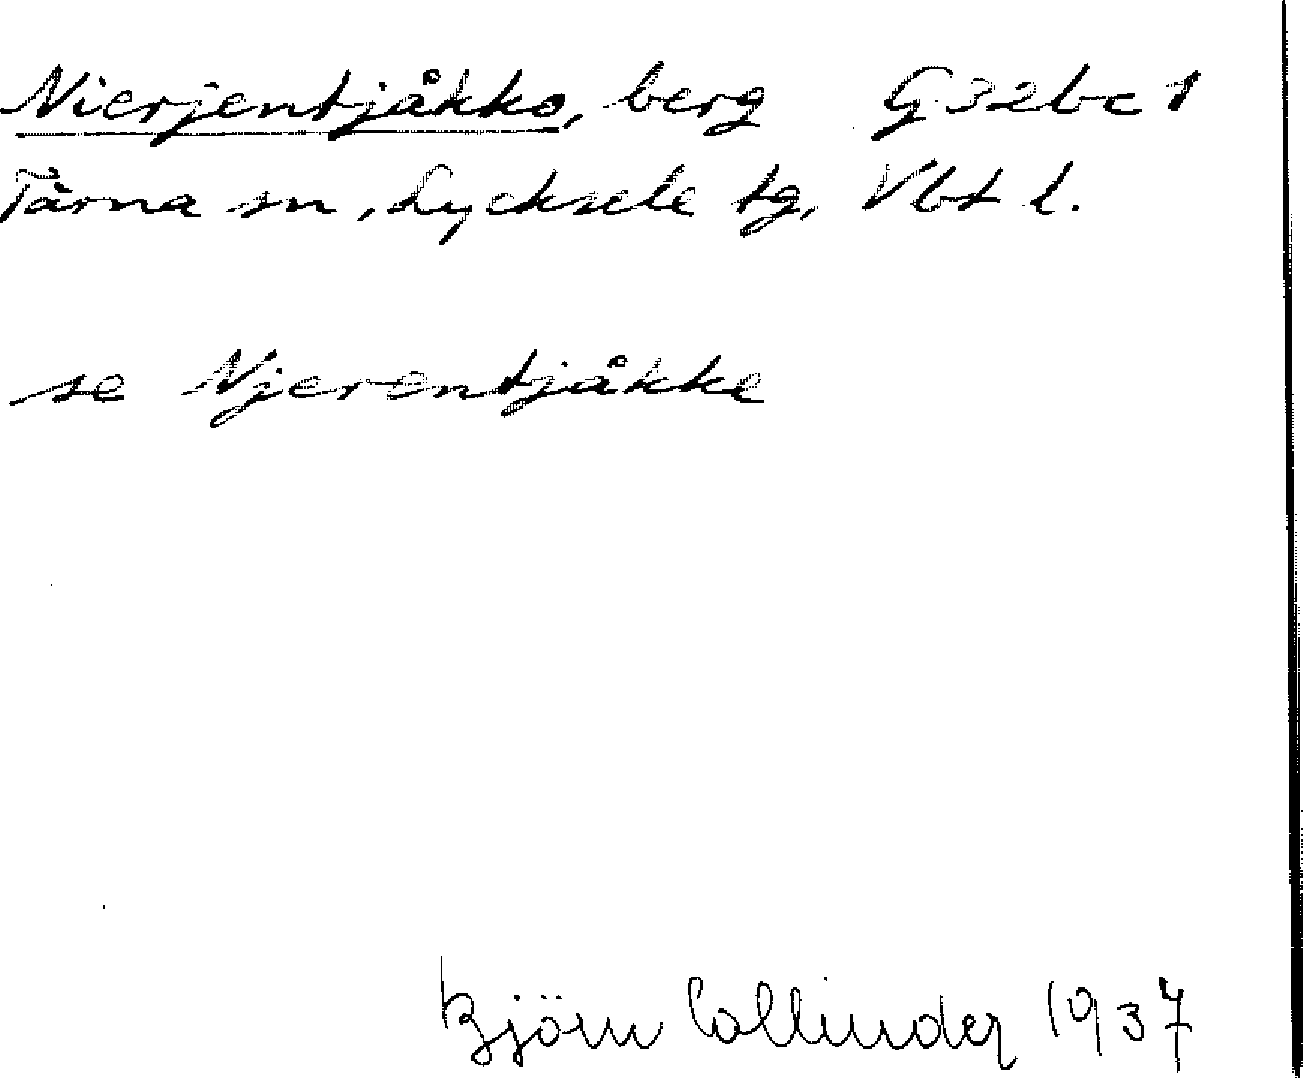 Nierjentjåkko, berg G 32bc 1
Tärna sn, Lycksele tg, Vbt l.
se Njerentjåkke
Björn Collinder 1937